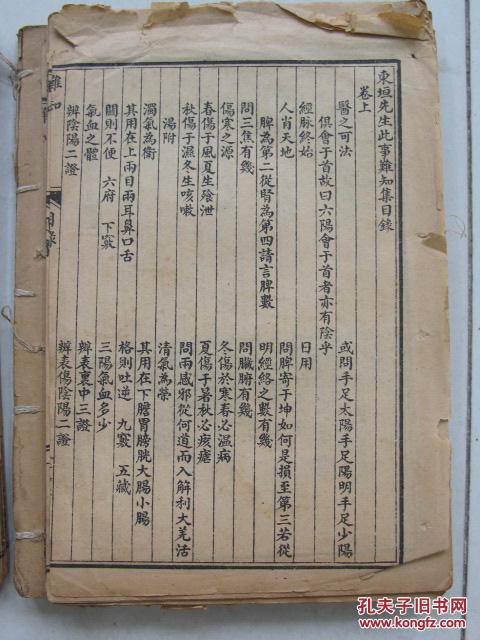 東垣先生此事難知集目錄
卷上
醫之可法 或問手足太陽手足陽明手足少陽
俱會于首故曰六陽會于首者亦有陰乎
經脉終始 日用
人肖天地 問脾寄于坤如何是損至第三若從
脾為第二從腎為第四請言脾數
問三焦有幾 明經絡之數有幾
傷寒之源 問臟腑有幾
春傷于風夏生飱泄 冬傷於寒春必溫病
秋傷于濕冬生咳嗽 夏傷于暑秋必痎瘧
湯附 問兩感邪從何道而入解利大羌活
濁氣為衛 清氣為榮
其用在上兩目兩耳鼻口舌 其用在下膽胃膀胱大腸小腸
關則不便 六府 下竅 格則吐逆 九竅 五藏
氣血之體 三陽氣血多少
辨陰陽二證 辨表裏中三證
辨表傷陰陽二證
難知
目錄
孔夫子旧书网
KONGFZ.COM